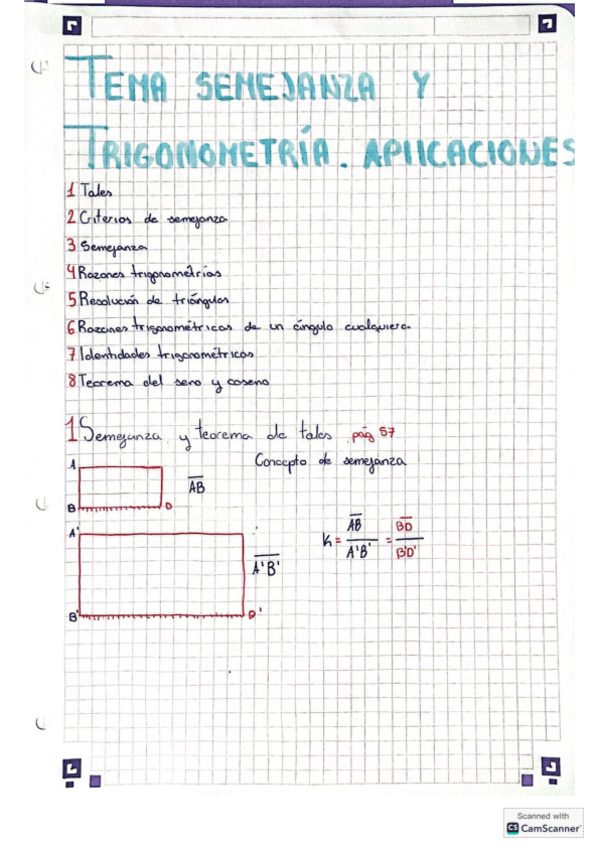 TEMA SEMEJANZA Y
TRIGONOMETRÍA. APLICACIONES
1 Tales
2 Criterios de semejanza
3 Semejanza
4 Razones trigonométrias
5 Resolución de triángulos
6 Razones trigonométricas de un ángulo cualquiera
7 Identidades trigonométricas
8 Teorema del seno y coseno
1 Semejanza y teorema de tales pág 57
Concepto de semejanza
A
AB
B D
A'
A'B'
K = AB / A'B' = BD / B'D'
B' D'
Scanned with
CS CamScanner